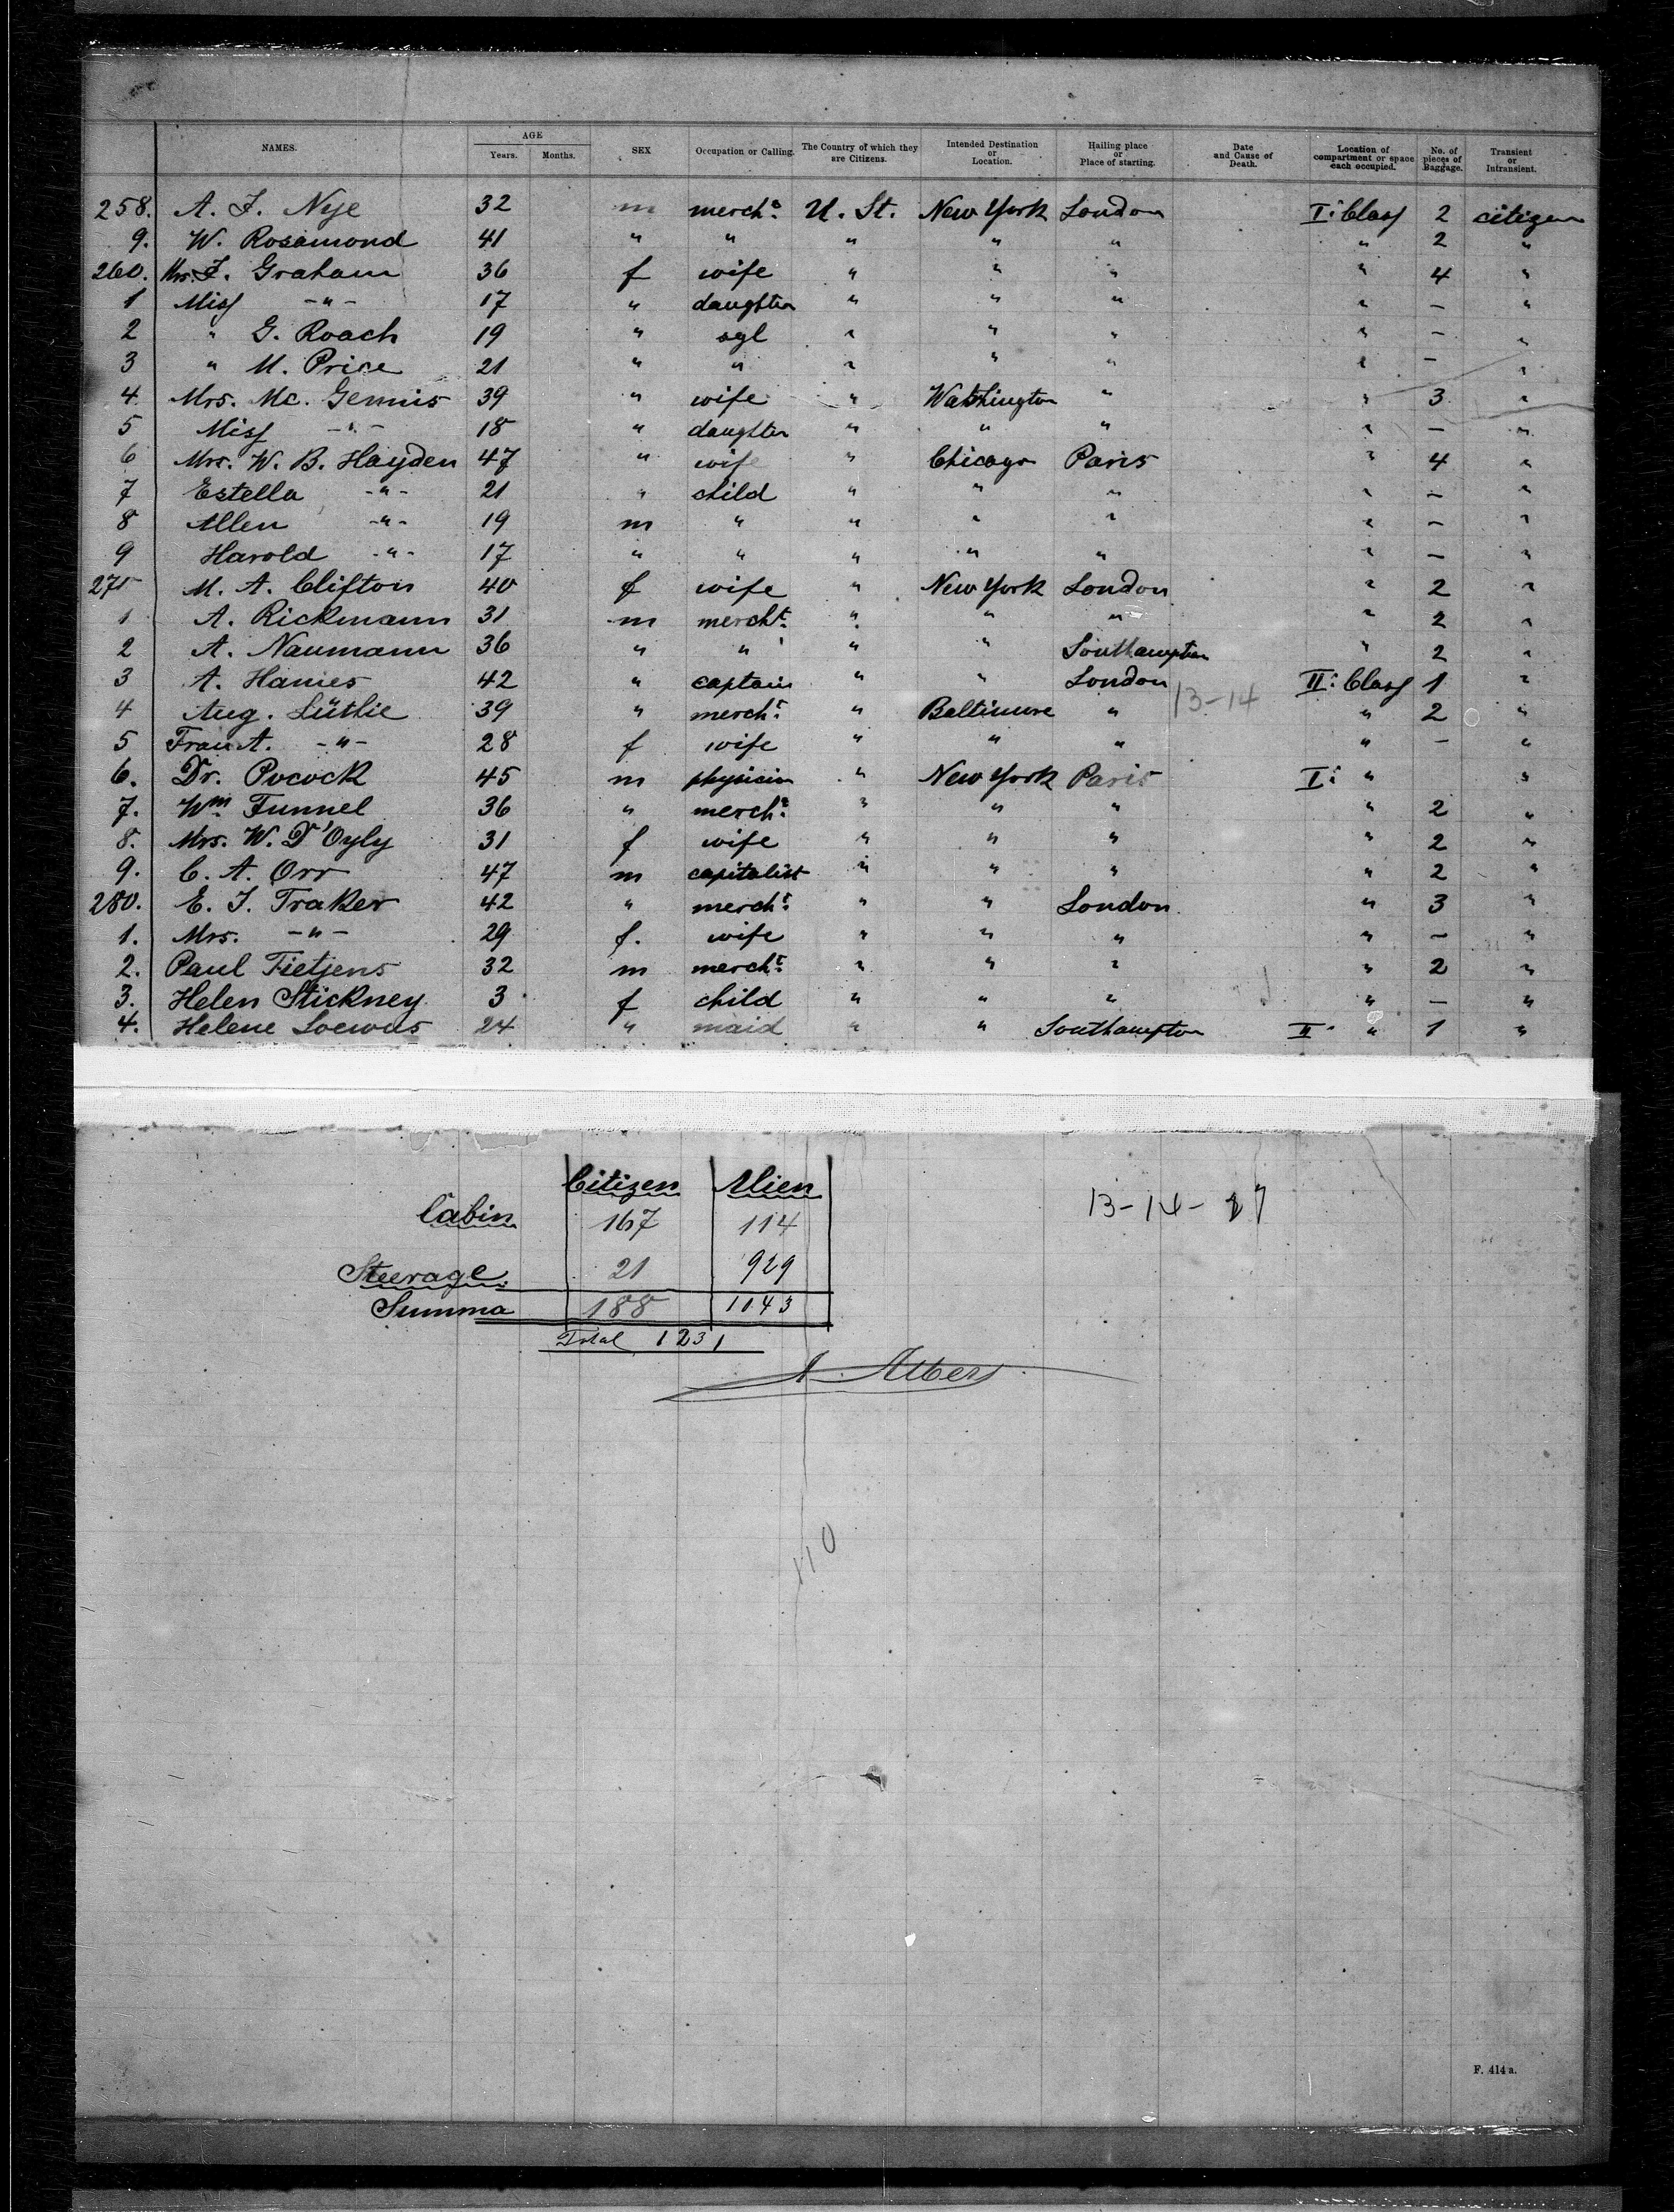 NAMES. AGE Years. Months. SEX Occupation or Calling. The Country of which they are Citizens. Intended Destination or Location. Hailing place or Place of starting. Date and Cause of Death. Location of compartment or space each occupied. No. of pieces of Baggage. Transient or Intransient.
258. A. F. Nye 32 m mercht. U. St. New York London I: Class 2 citizen
9. W. Rosamond 41 " " " " " " 2 "
260. Mrs. F. Graham 36 f wife " " " " 4 "
1 Miss -"- 17 " daughter " " " " - "
2 " G. Roach 19 " sgl " " " " - "
3 " M. Price 21 " " " " " " - "
4 Mrs. Mc. Gennis 39 " wife " Washington " " 3 "
5 Miss -"- 18 " daughter " " " " - "
6 Mrs. W. B. Hayden 47 " wife " Chicago Paris " 4 "
7 Estella -"- 21 " child " " " " - "
8 Allen -"- 19 m " " " " " - "
9 Harold -"- 17 " " " " " " - "
270 M. A. Clifton 40 f wife " New York London " 2 "
1 A. Rickmann 31 m mercht. " " " " 2 "
2 A. Naumann 36 " " " " Southampton " 2 "
3 A. Hanies 42 " captain " " London II: Class 1 "
4 Aug. Lüthie 39 " mercht. " Baltimore " 13-14 " 2 "
5 Frau A. -"- 28 f wife " " " " - "
6. Dr. Pocock 45 m physician " New York Paris I: " "
7. Wm. Funnel 36 " mercht. " " " " 2 "
8. Mrs. W. D'Oyly 31 f wife " " " " 2 "
9. C. A. Orr 47 m capitalist " " " " 2 "
280. E. J. Traker 42 " mercht. " " London " 3 "
1. Mrs. -"- 29 f. wife " " " " - "
2. Paul Tietjens 32 m mercht. " " " " 2 "
3. Helen Stickney 3 f child " " " " - "
4. Helene Loewus 24 " maid " " Southampton II " 1 "
Citizen Alien
Cabin 167 114
13-14-27
Steerage. 21 929
Summa 188 1143
Total 1231
A. Albers
110
F. 414 a.